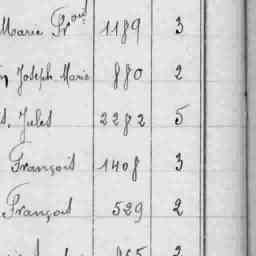 Marie Fr 1189 3
Joseph Marie 880 2
Jules 2282 5
François 1408 3
François 529 2